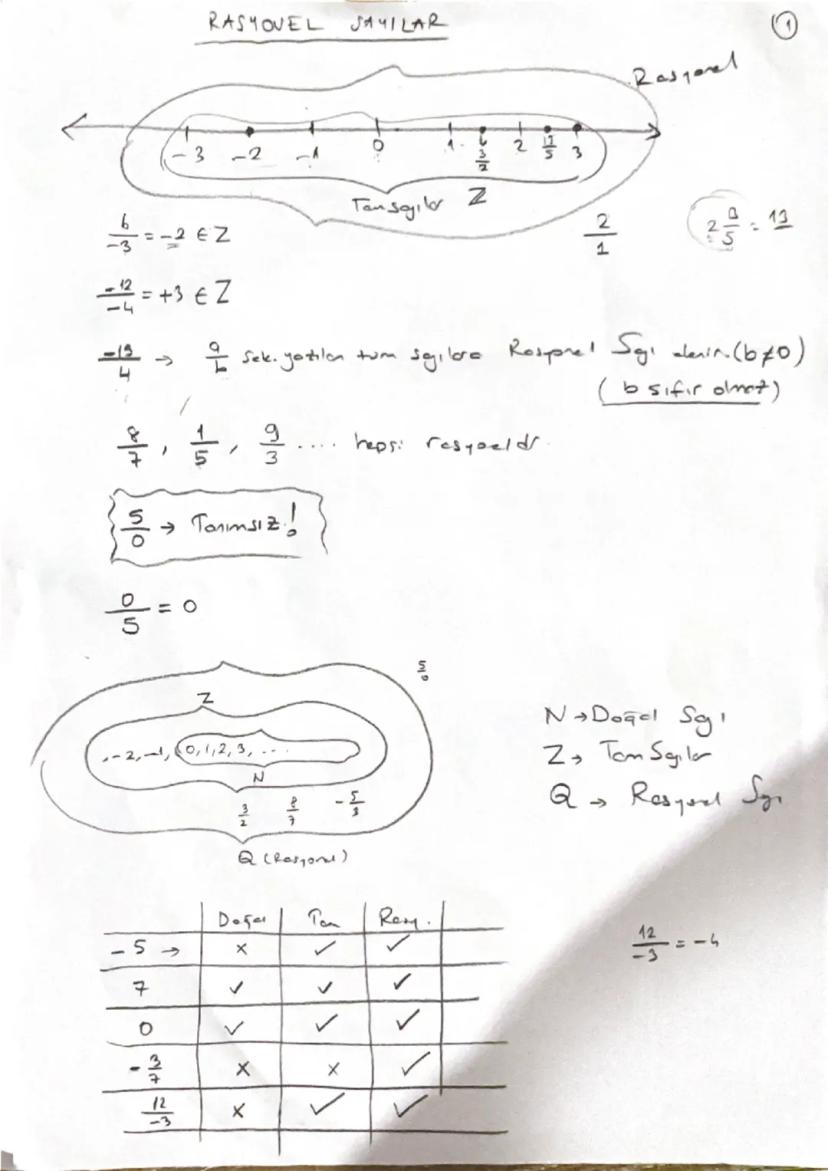 RASYONEL SAYILAR
1
Rasyonel
-3 -2 -1 0 1 3/2 2 3
Tam sayılar Z
6/-3 = -2 ∈ Z
2/1
-12/-4 = +3 ∈ Z
→ a/b şek. yazılan tüm sayılara Rasyonel Sayı denir. (b≠0)
(b sıfır olmaz)
8/7, 1/5, 9/3 .... hepsi rasyoneldir.
5/0 → Tanımsız!
0/5 = 0
5/0
Z
-2, -1, 0, 1, 2, 3, ...
N
3/2 8/7 -5/3
Q (Rasyonel)
N → Doğal Sayı
Z → Tam Sayılar
Q → Rasyonel Sayı
Doğal Tam Rasy.
-5 → × ✓ ✓
7 ✓ ✓ ✓
0 ✓ ✓ ✓
-3/7 × × ✓
12/-3 × ✓ ✓
12/-3 = -4